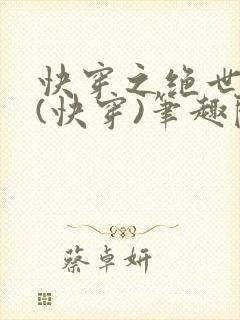 快穿之绝世
(快穿)笔趣阁
蔡卓妍